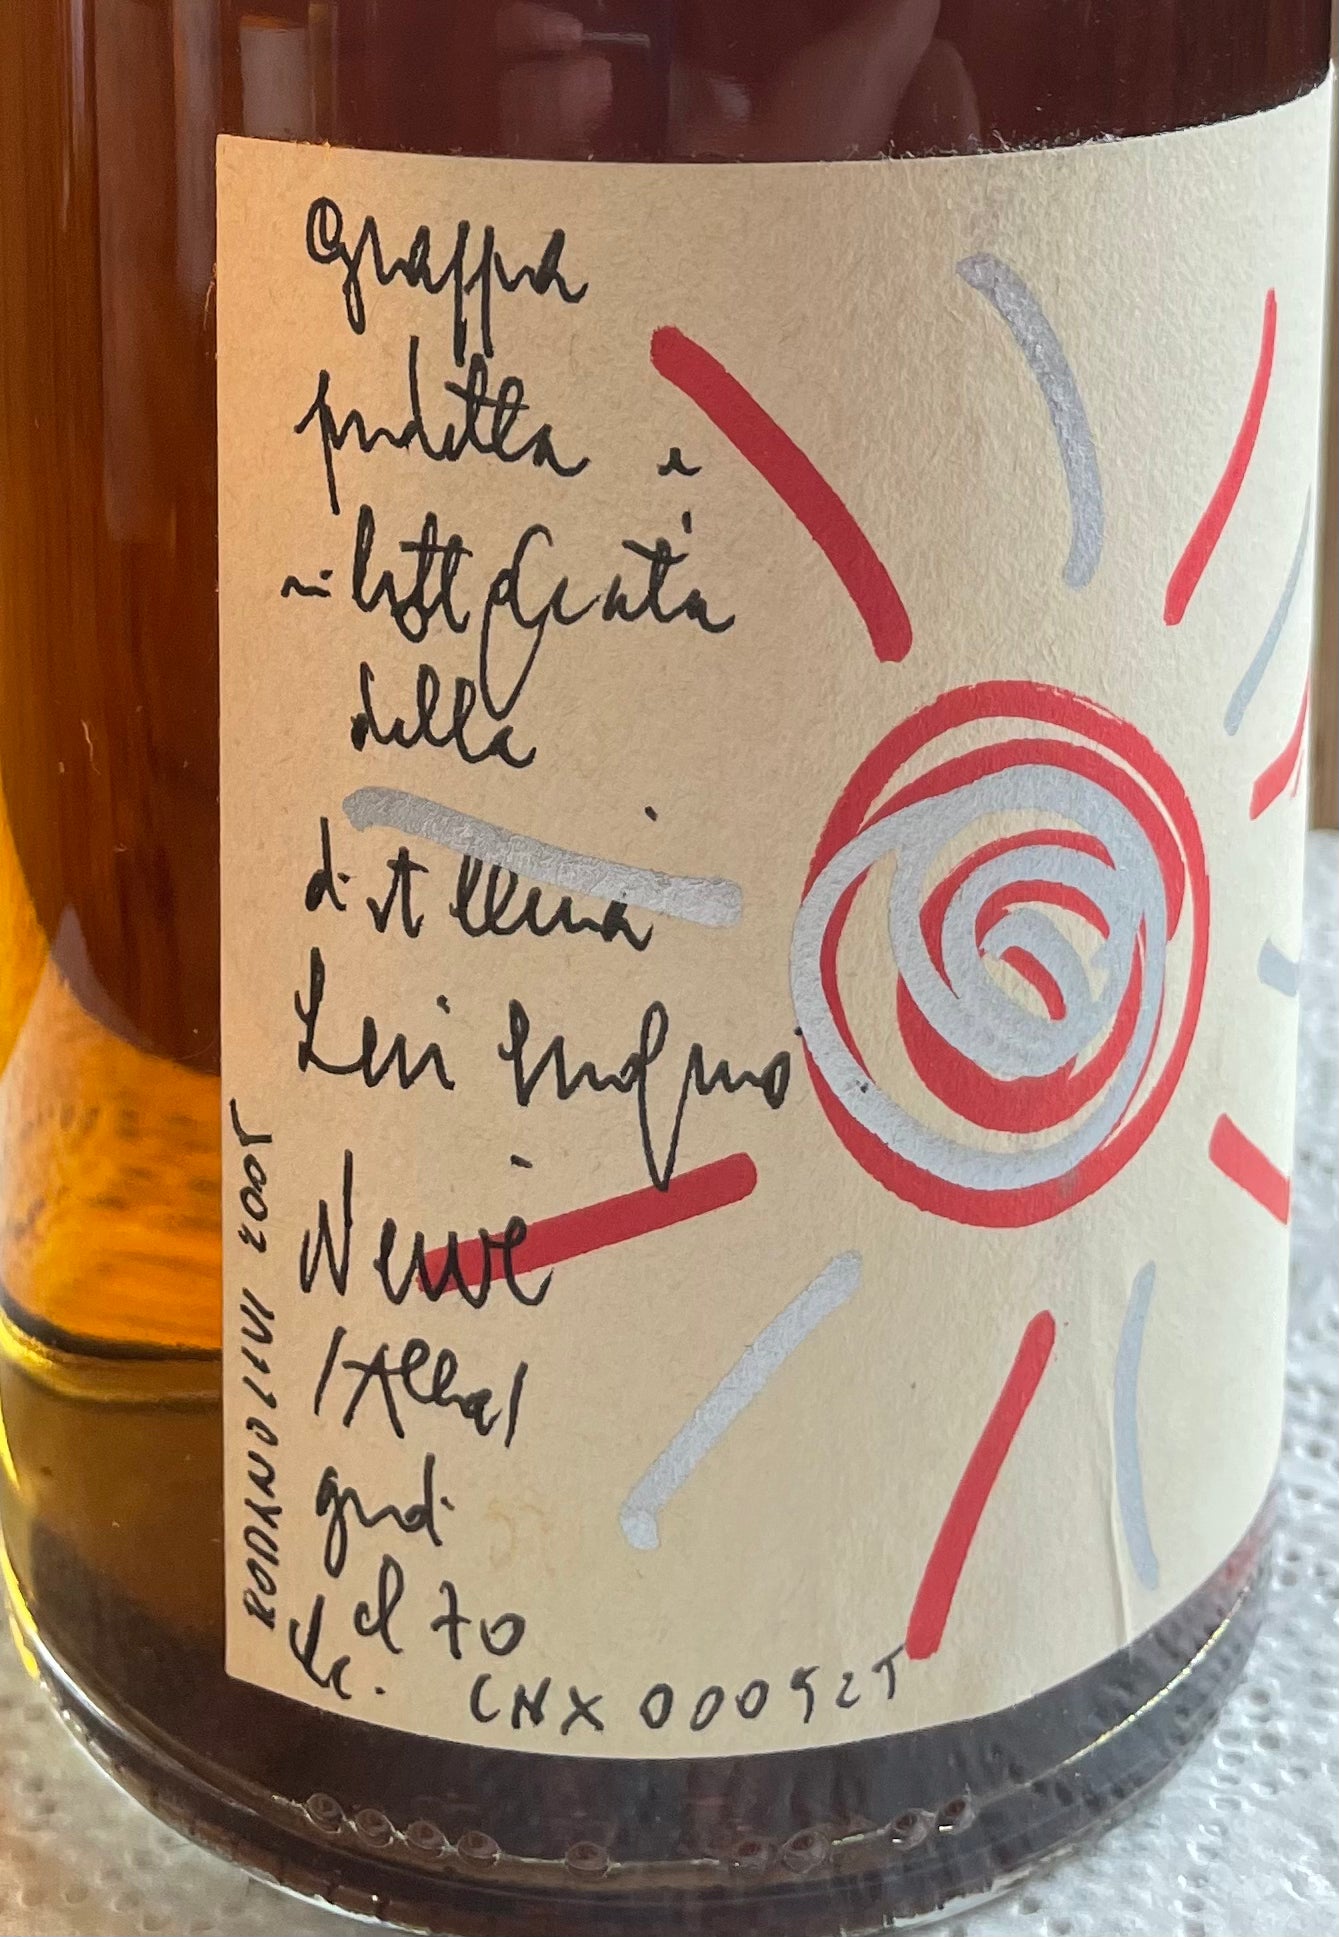 Grappa
prodotta e
imbottigliata
della
distilleria
Levi Romano
Neive
/Alba/
gradi
el 70
cl.
CNX 00052T
ROMANO LEVI 2005